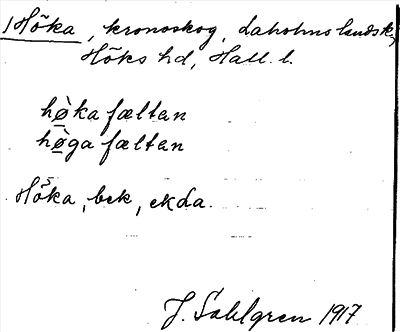 1 Höka, kronoskog, Laholms landsk,
Höks hd, Hall. l.
hø̀ka fæltan
hø̀ga fæltan
Höka, bck, ekda.
J. Sahlgren 1917